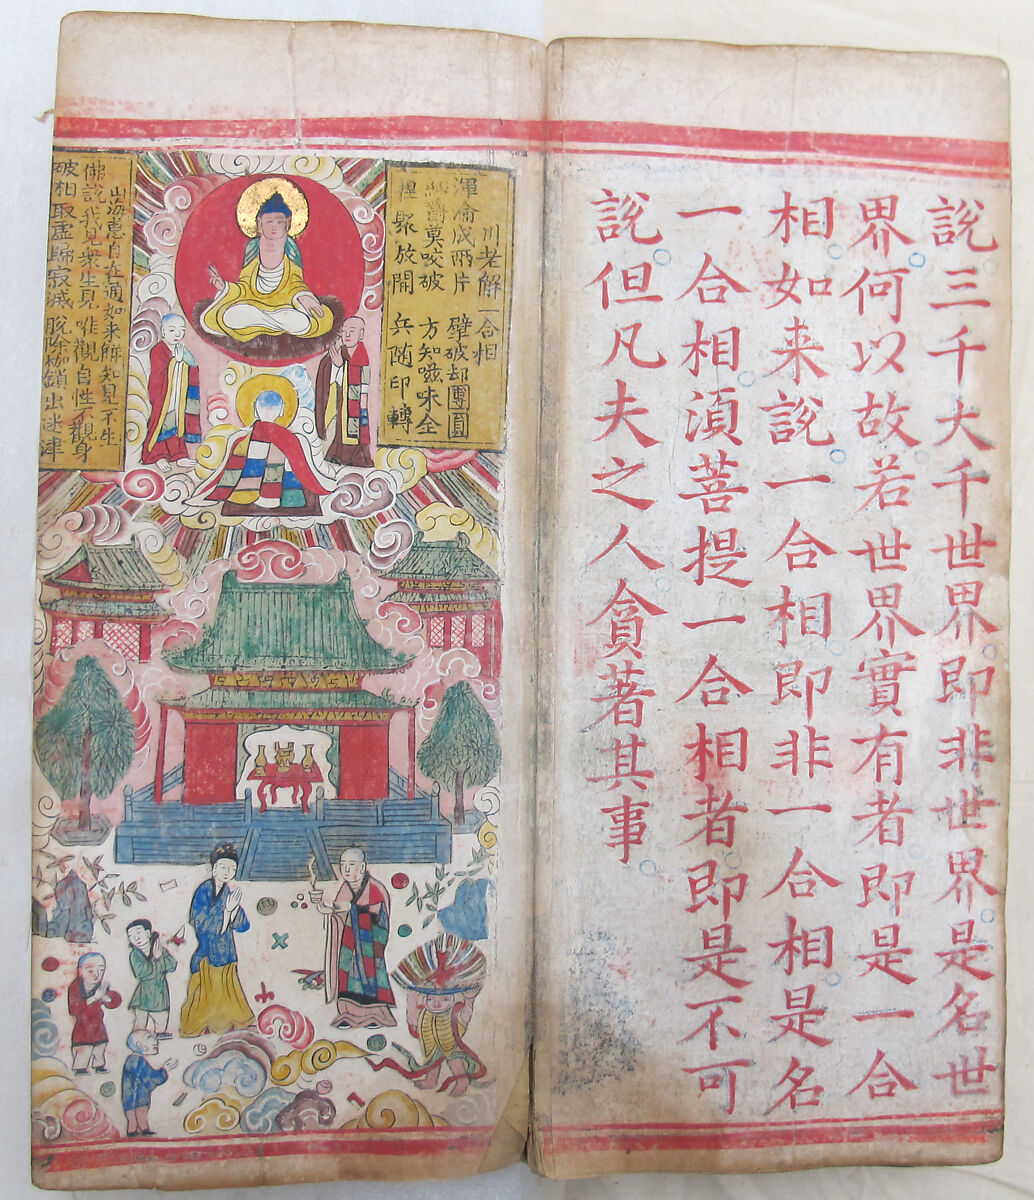 說三千大千世界即非世界是名世
界何以故若世界實有者即是一合
相如来說一合相即非一合相是名
一合相湏菩提一合相者即是不可
說但凡夫之人貪著其事
川老解一合相
渾侖成兩片 擘破却團圓
嚼莫咬破 方知滋味全
捏聚放開 兵随印轉
山海惠自在通如来解知見不生
佛說我見衆生見 唯觀自性不觀身
破相取虛歸寂滅 脫除枷鎖出迷津